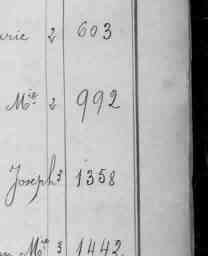 2 603
Mie 2 992
Joseph 3 1358
Mie 3 1442